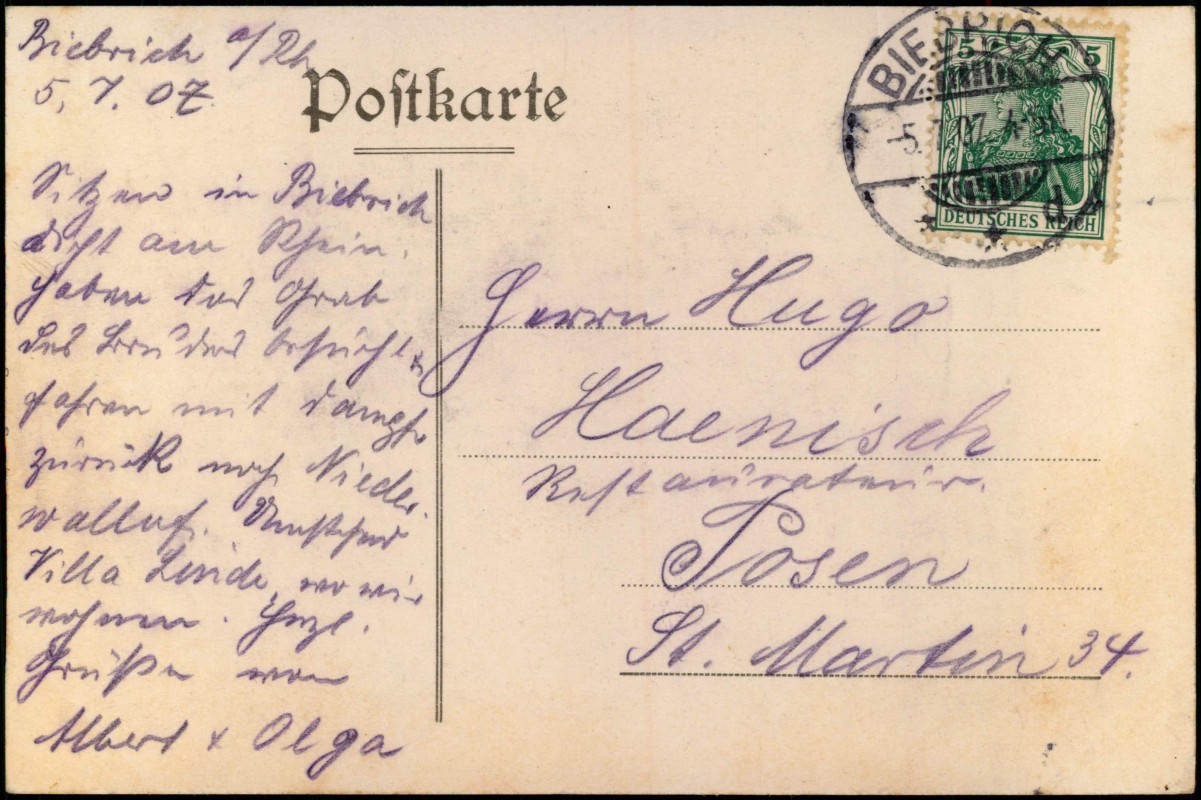 Biebrich a/Rh
5. 7. 07.
Postkarte
BIEBRICH
5. 7. 07. 4-5N
5 5
DEUTSCHES REICH
Sitzen in Biebrich
dicht am Rhein.
Haben das Grab
des Bruders besucht &
fahren mit Dampfer
zurück nach Nieder-
walluf. Umstehend
Villa Linde, wo wir
wohnen. Herzl.
Grüße von
Albert & Olga
Herrn Hugo
Haenisch
Restaurateur.
Posen
St. Martin 34.